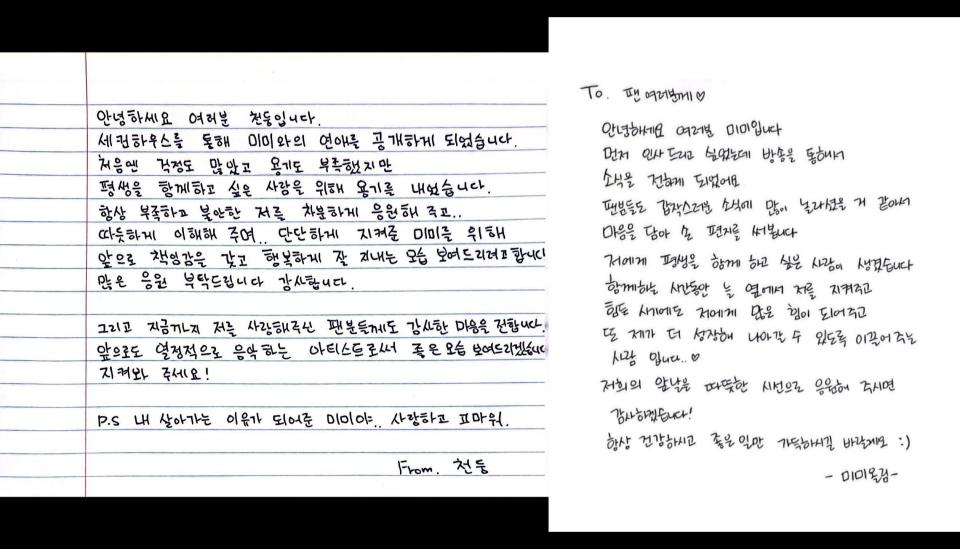 안녕하세요 여러분 천둥입니다.
세컨하우스를 통해 미미와의 연애를 공개하게 되었습니다.
처음엔 걱정도 많았고 용기도 부족했지만
평생을 함께하고 싶은 사람을 위해 용기를 내었습니다.
항상 부족하고 불안한 저를 차분하게 응원해 주고..
따듯하게 이해해 주며.. 단단하게 지켜준 미미를 위해
앞으로 책임감을 갖고 행복하게 잘 지내는 모습 보여드리려고합니다
많은 응원 부탁드립니다 감사합니다.
그리고 지금까지 저를 사랑해주신 팬분들께도 감사한 마음을 전합니다.
앞으로도 열정적으로 음악하는 아티스트로써 좋은모습 보여드리겠습니다
지켜봐 주세요!
P.S 내 살아가는 이유가 되어준 미미야.. 사랑하고 고마워.
From. 천둥
To. 팬 여러분께♡
안녕하세요 여러분 미미입니다
먼저 인사드리고 싶었는데 방송을 통해서
소식을 전하게 되었어요
팬분들도 갑작스러운 소식에 많이 놀라셨을 거 같아서
마음을 담아 손 편지를 써봅니다
저에게 평생을 함께 하고 싶은 사람이 생겼습니다
함께하는 시간동안 늘 옆에서 저를 지켜주고
힘든 시기에도 저에게 많은 힘이 되어주고
또 제가 더 성장해 나아갈 수 있도록 이끌어주는
사람 입니다..♡
저희의 앞날을 따뜻한 시선으로 응원해 주시면
감사하겠습니다!
항상 건강하시고 좋은 일만 가득하시길 바랄게요 :)
- 미미올림-